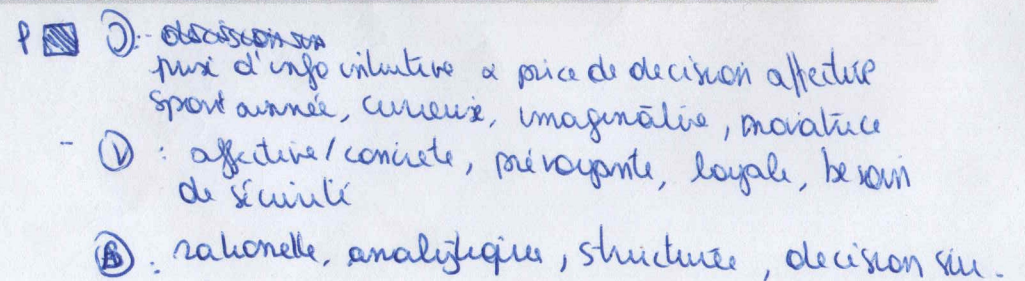 P J :
prise d'info intuitive & price de decision affective
spontannée, curieux, imaginative, novatrice
- V : affective/concrete, prévoyante, loyale, besoin
de sécurité
B : rationelle, analytique, structurée, decision sur